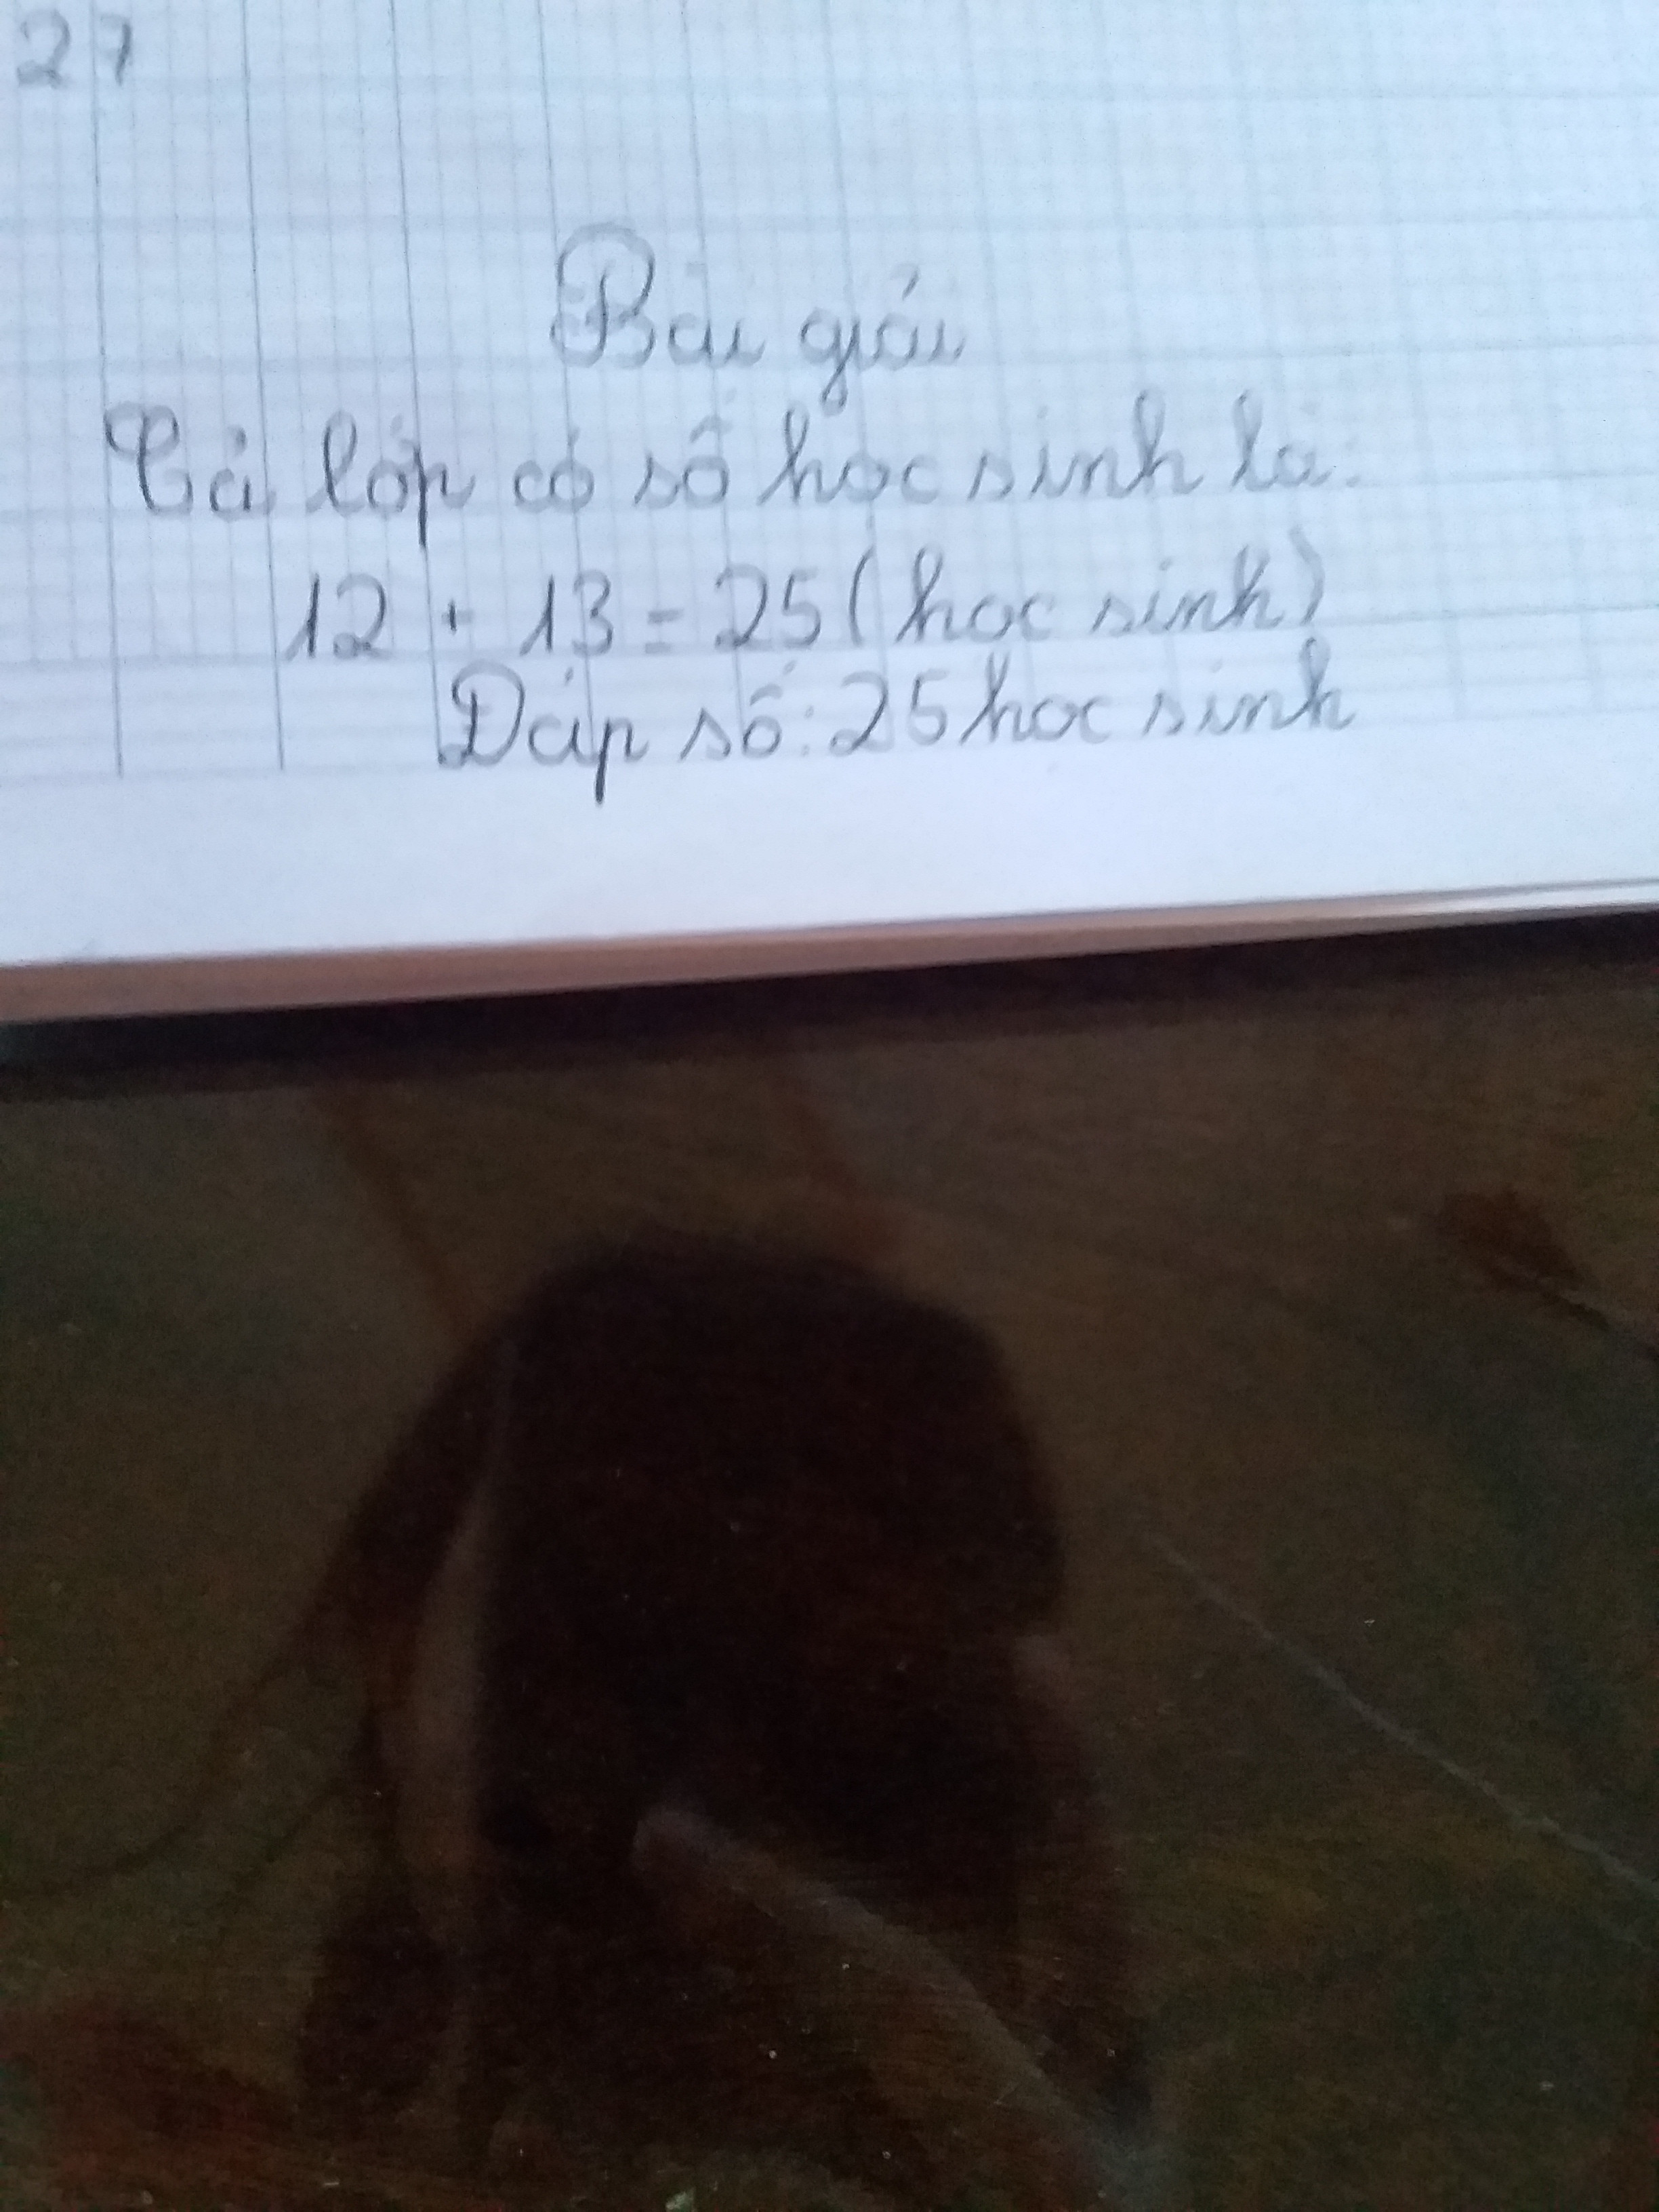 27
Bài giải
Cả lớp có số học sinh là:
12 + 13 = 25 (học sinh)
Đáp số: 25 học sinh